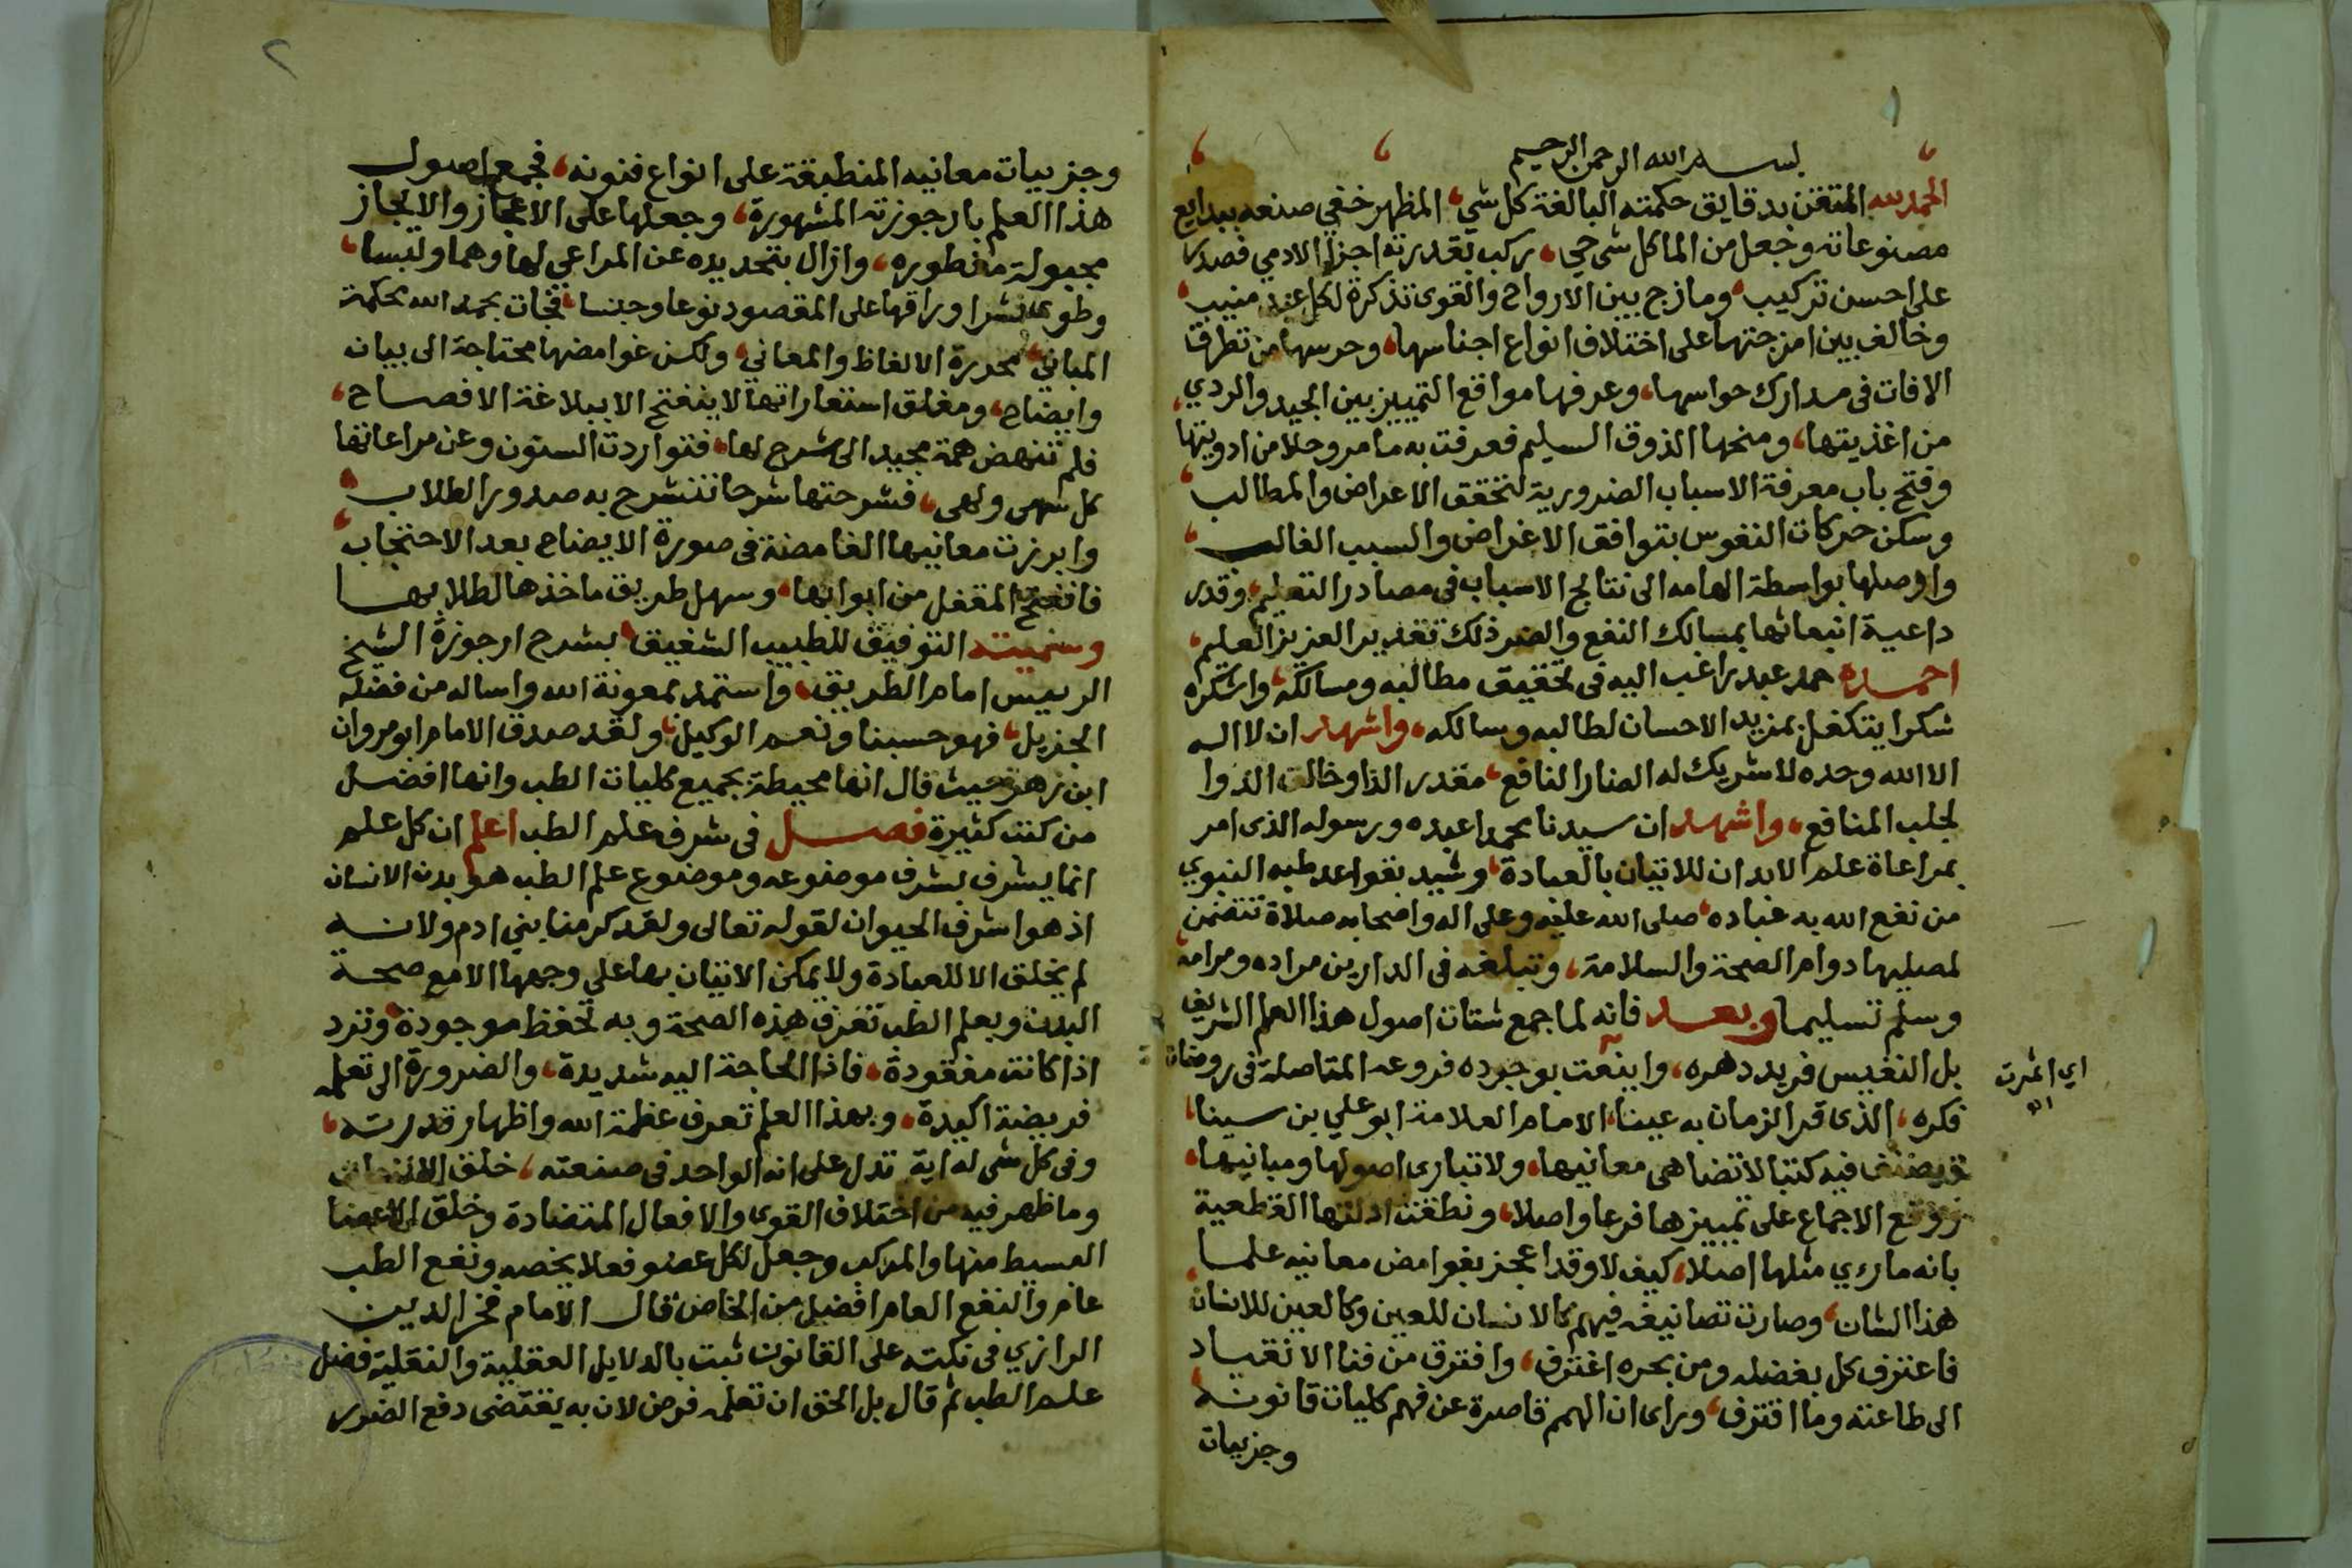 بسم الله الرحمن الرحيم
الحمد لله المتقن بدقايق حكمته البالغة كل شي، المظهر خفي صنعه ببدايع
مصنوعاته وجعل من الما كل شي حي، ركب بقدرته اجزا الادمي فصدر
على احسن تركيب، ومازج بين الارواح والقوى تذكرة لكل عبد منيب،
وخالف بين امزجتها على اختلاف انواع اجناسها، وحرسها من تطرق
الافات في مدارك حواسها، وعرفها مواقع التمييز بين الجيد والردي،
من اغذيتها، ومنحها الذوق السليم فعرفت به ما مر وحلا من ادويتها
وفتح باب معرفة الاسباب الضرورية لتحقق الاعراض والمطالب،
وسكن حركات النفوس بتوافق الاغراض والسبب الغالب،
واوصلها بواسطة الهامه الى نتايج الاسباب في مصادر التعليم، وقدر
داعية انبعاثها بمسالك النفع والضر ذلك تقدير العزيز العليم،
احمده حمد عبد راغب اليه في تحقيق مطالبه ومسالكه، واشكره
شكرا يتكفل بمزيد الاحسان لطالبه وسالكه، واشهد ان لا اله
الا الله وحده لا شريك له الضار النافع، مقدر الذا وخالق الدوا
لجلب المنافع، واشهد ان سيدنا محمدا عبده ورسوله الذى امر
بمراعاة علم الابدان للاتيان بالعبادة، وشيد بقواعد طبه النبوي
من نفع الله به عباده، صلى الله عليه وعلى اله واصحابه صلاة تتضمن
لمصليها دوام الصحة والسلامة، وتبلغه في الدارين مراده ومرامه،
وسلم تسليما وبعد فانه لما جمع شتات اصول هذا العلم الشريف
بل النفيس فريد دهره، واينعت بوجوده فروعه المتاصلة في روضات
اي اثمرت
فكره، الذى قر الزمان به عينا، الامام العلامة ابو علي بن سينا،
فيه كتبا لا تضاهى معانيها، ولا تبارى اصولها ومبانيها،
ووقع الاجماع على تمييزها فرعا واصلا، ونطقت ادلتها القطعية
بانه ما رءي مثلها اصلا، كيف لا وقد اعجز بغوامض معانيه علما
هذا الشان، وصارت تصانيفه فيهم كالانسان للعين وكالعين للانسان
فاعترف كل بفضله ومن بحره اغترف، وافترق من فنا الانقياد
الى طاعته وما اقترف، وراى ان الهمم قاصرة عن فهم كليات قانونه،
وجزييات
٢
وجزييات معانيه المنطبقة على انواع فنونه، فجمع اصول
هذا العلم بارجوزته المشهورة، وجعلها على الاعجاز والايجاز
مجبولة مفطوره، وازال بتحديده عن المراعي لها وهما ولبسا،
وطوى نشر اوراقها على المقصود نوعا وجنسا، فجات بحمد الله محكمة
المباني، محررة الالفاظ والمعاني، ولكن غوامضها محتاجة الى بيان
وايضاح، ومغلق استعاراتها لا ينفتح الا ببلاغة الافصاح،
فلم تنهض همة مجيد الى شرح لها، فتواردت السنون وعن مراعاتها
كل سهى ولهى، فشرحتها شرحا تنشرح به صدور الطلاب،
وابرزت معانيها الغامضة في صورة الايضاح بعد الاحتجاب،
فانفتح المقفل من ابوابها، وسهل طريق ماخذها لطلابها
وسميته التوفيق للطبيب الشفيق، بشرح ارجوزة الشيخ
الرييس امام الطريق، واستمد بمعونة الله واساله من فضله
الجزيل، فهو حسبنا ونعم الوكيل، ولقد صدق الامام ابو مروان
ابن زهر حيث قال انها محيطة بجميع كليات الطب وانها افضل
من كتب كثيرة فصل في شرف علم الطب اعلم ان كل علم
انما يشرف بشرف موضوعه وموضوع علم الطب هو بدن الانسان
اذ هو اشرف الحيوان لقوله تعالى ولقد كرمنا بني ادم ولانه
لم يخلق الا للعبادة ولا يمكن الاتيان بها على وجهها الا مع صحة
البدن وبعلم الطب تعرف هذه الصحة وبه تحفظ موجودة، وترد
اذا كانت مفقودة، فاذا الحاجة اليه شديدة، والضرورة الى تعلمه
فريضة اكيدة، وبهذا العلم تعرف عظمة الله واظهار قدرته،
وفي كل شي له اية تدل على انه الواحد في صنعته، خلق
وما ظهر فيه من اختلاف القوى والافعال المتضادة وخلق الاعضا
البسيط منها والمركب وجعل لكل عضو فعلا يخصه ونفع الطب
عام والنفع العام افضل من الخاص، قال الامام فخر الدين
الرازي في نكته على القانون ثبت بالدلايل العقلية والنقلية فضل
علم الطب ثم قال بل الحق ان تعلمه فرض لان به يقتضى دفع الضرر